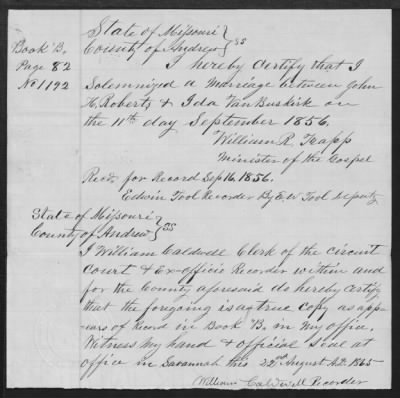 State of Missouri }
County of Andrew } SS
Book B.
Page 82
No 1192
I hereby Certify that I
Solemnized a Marriage between John
H. Roberts & Ida VanBuskirk on
the 11th day September 1856.
William R. Trapp
Minister of the Gospel
Recd. for Record Sep 16. 1856.
Edwin Tool Recorder By E. W Tool Deputy
State of Missouri }
County of Andrew } SS
I William Caldwell Clerk of the circuit
Court & Ex-officio Recorder within and
for the County aforesaid do hereby Certify
that the foregoing is a true copy as app-
ears of Record in Book B, in my office.
Witness my hand & official Seal at
office in Savannah this 22nd August A.D. 1865
William Caldwell Recorder